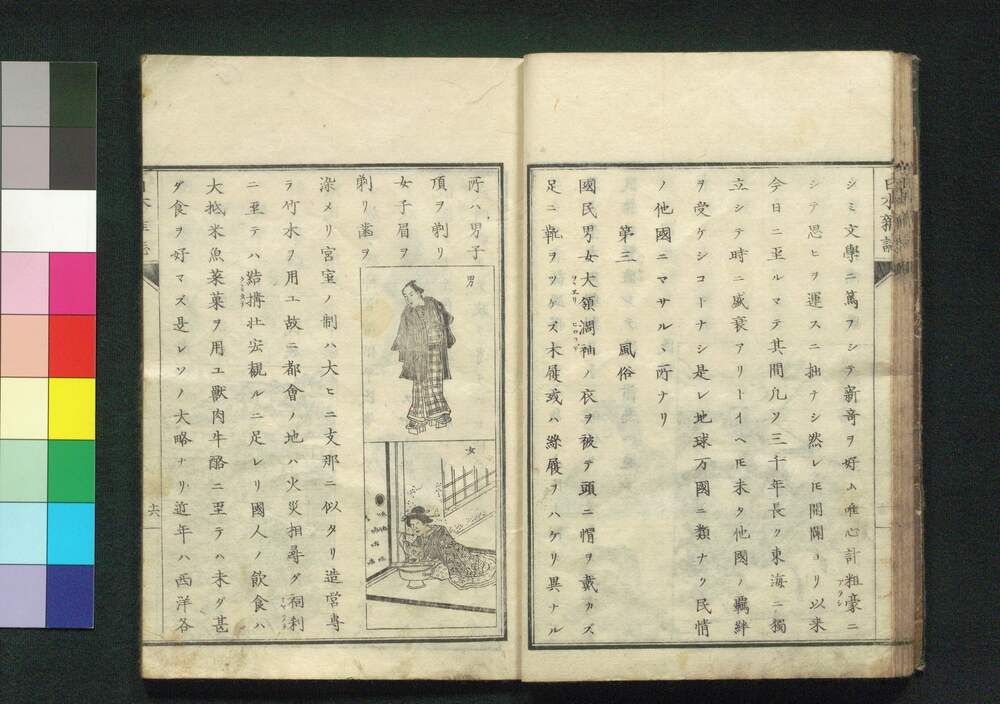 シミ文學ニ篤フシテ新奇ヲ好ム唯心計粗豪ニ
シテ思ヒヲ運スニ拙ナシ然レ𪜈開闢ヨリ以来
今日ニ至ルマテ其間凡ソ三千年長ク東海ニ獨
立シテ時ニ盛衰アリトイヘ𪜈未タ他國ノ羈絆
ヲ受ケシコトナシ是レ地球万國ニ類ナク民情
ノ他國ニマサルヽ所ナリ
第三 風俗
國民男女大領濶袖ノ衣ヲ被テ頭ニ帽ヲ戴カズ
足ニ靴ヲツケズ木履或ハ絲履ヲハケリ異ナル
所ハ男子
頂ヲ剃リ
女子眉ヲ
剃リ歯ヲ
男
女
染メリ宮室ノ制ハ大ヒニ支那ニ似タリ造営専
ラ竹木ヲ用ユ故ニ都會ノ地ハ火災相尋グ祠刹
ニ至テハ結搆壮宏観ルニ足レリ國人ノ飲食ハ
大抵米魚菜菓ヲ用ユ獸肉牛酪ニ至テハ未ダ甚
ダ食ヲ好マズ是レソノ大略ナリ近年ハ西洋各
六